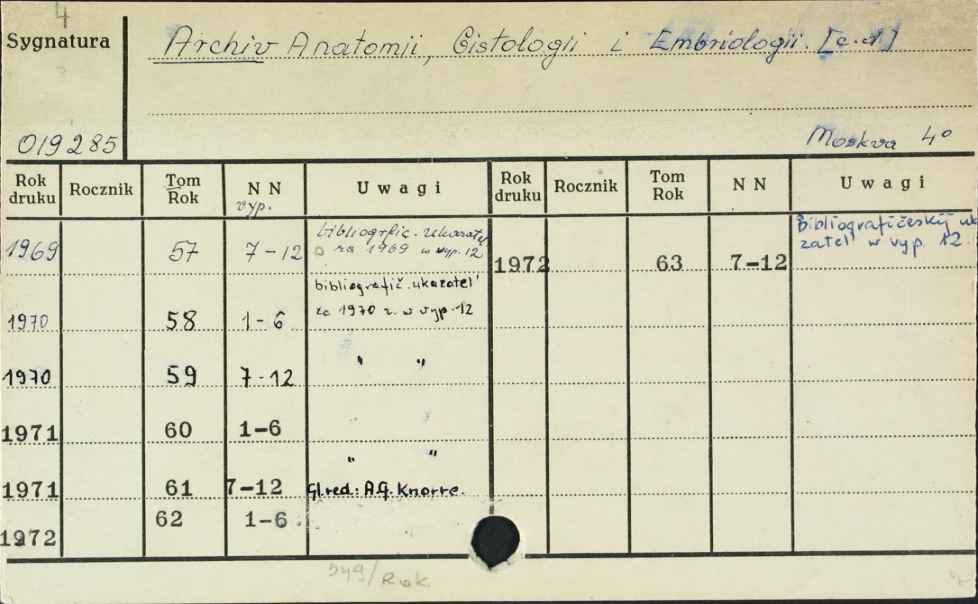 4
Sygnatura
Archiv Anatomii, Gistologii i Embriologii. [c.d.]
019285
Moskva 4°
Rok druku Rocznik Tom Rok NN vyp. Uwagi Rok druku Rocznik Tom Rok NN Uwagi
1969 57 7-12 bibliografic. ukazatel' za 1969 w vyp. 12
1972 63 7-12 Bibliografičeskij ukazatel' w vyp. 12.
1970 58 1-6 bibliografič. ukazatel' za 1970 r. w vyp. 12
1970 59 7-12 " "
1971 60 1-6
" "
1971 61 7-12 Gl. red: A.G. Knorre.
1972 62 1-6
549/Rak